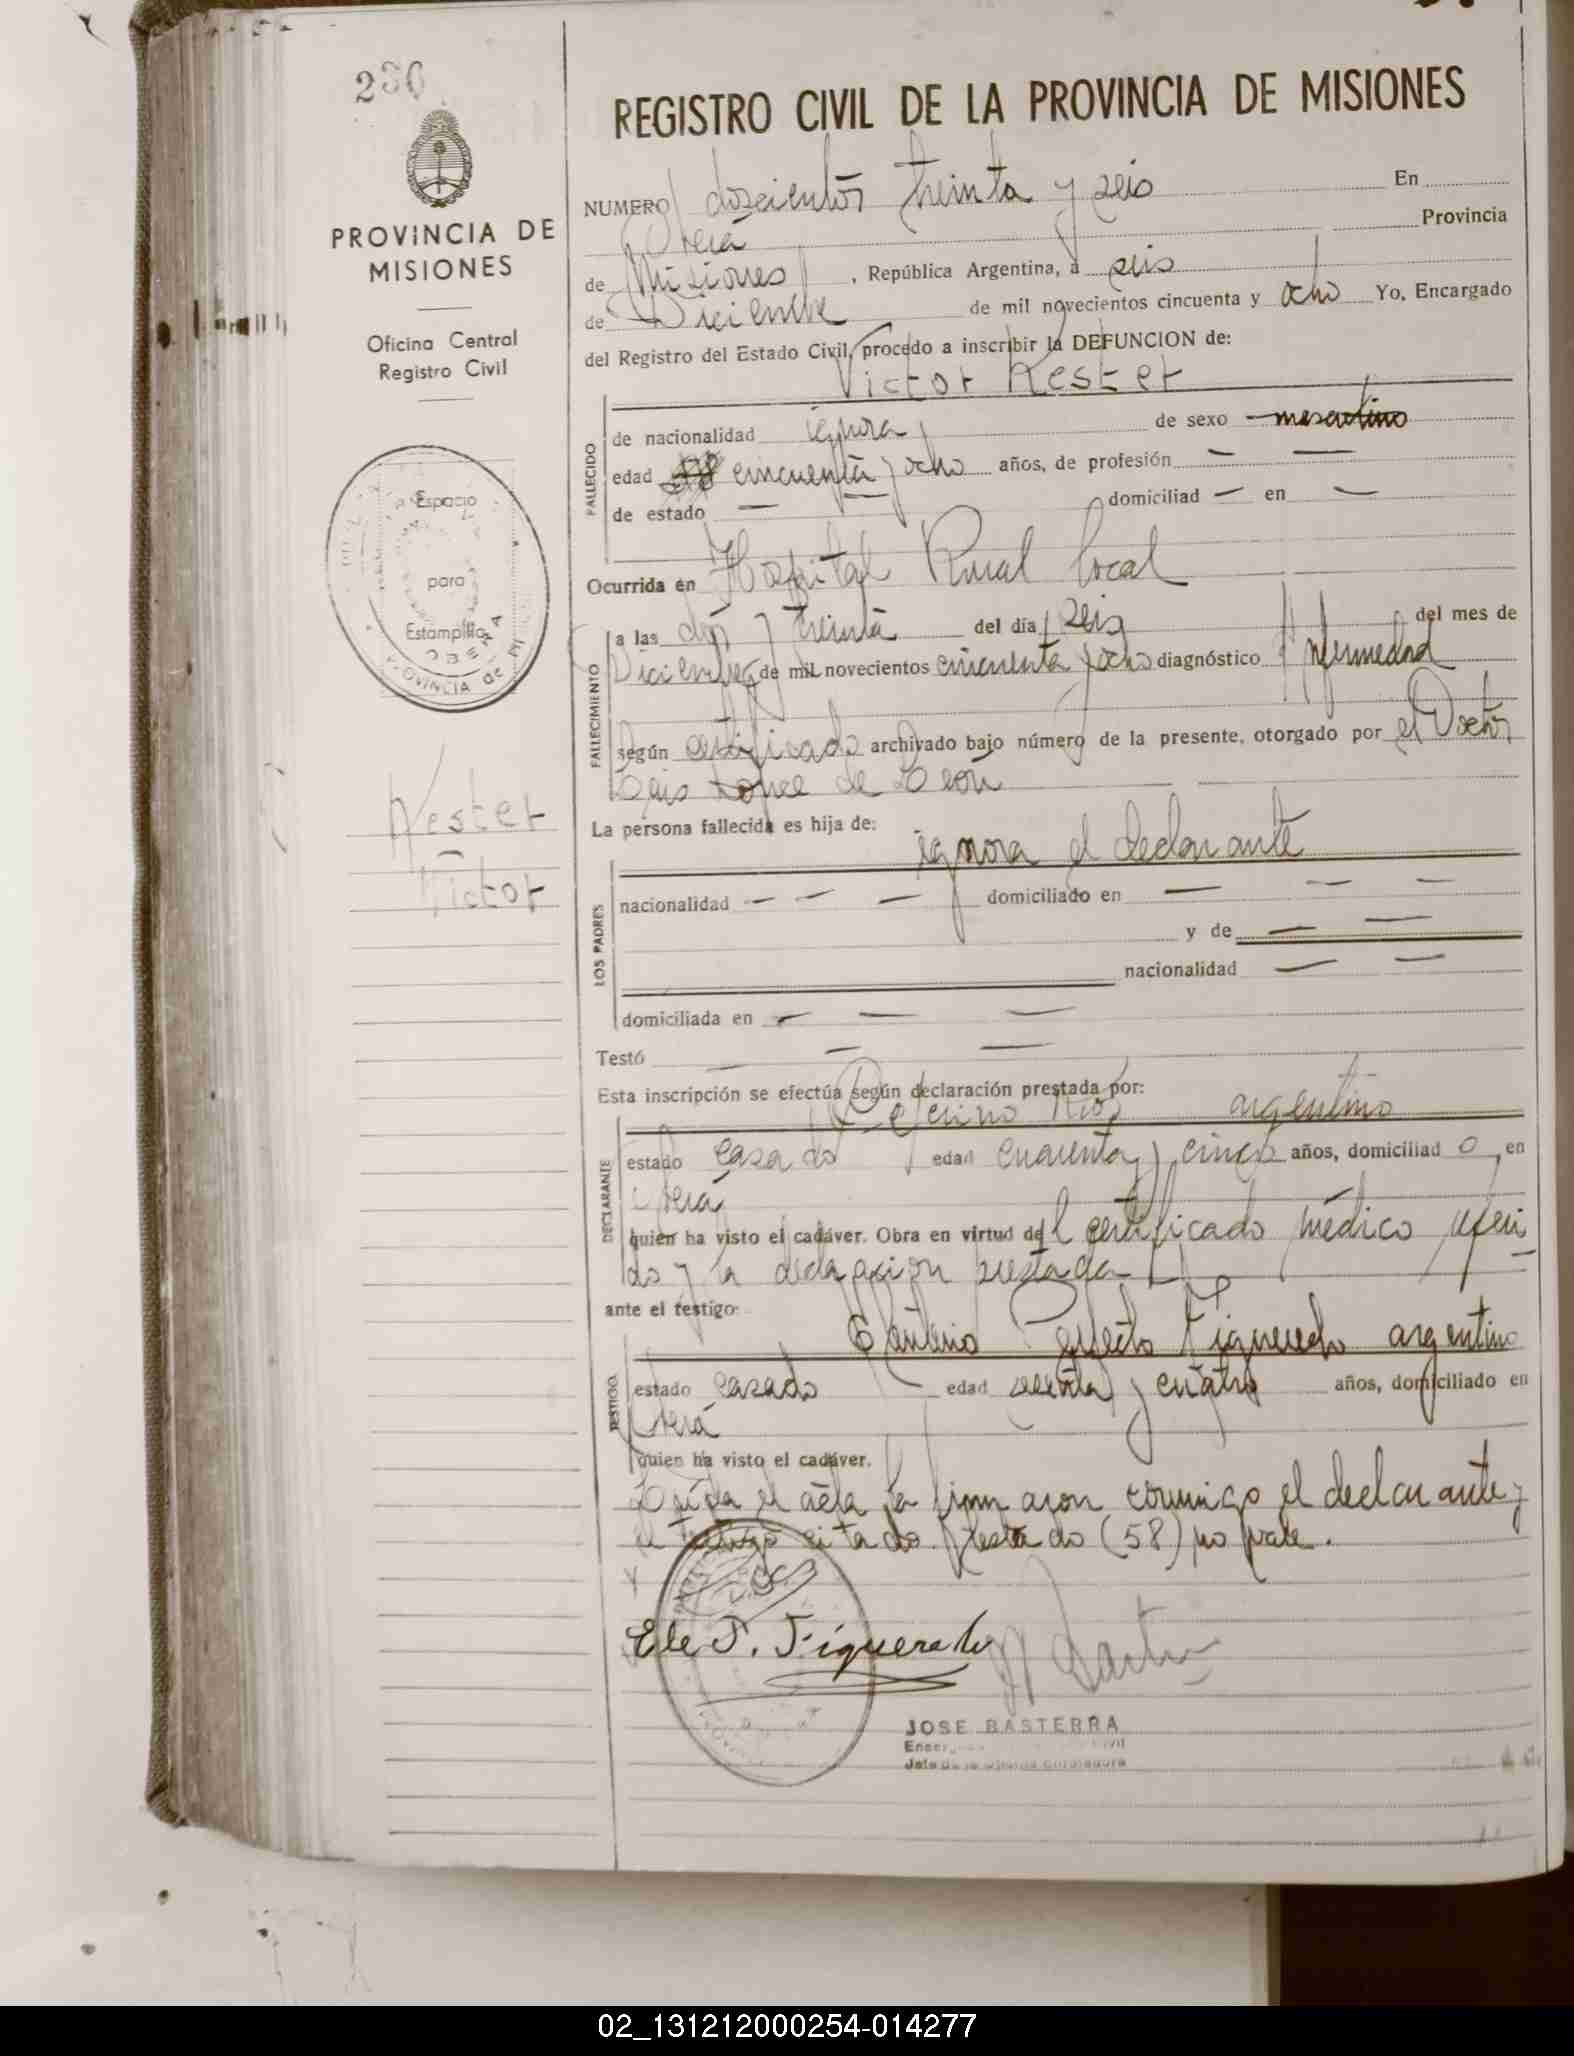 236
PROVINCIA DE
MISIONES
Oficina Central
Registro Civil
Espacio
para
Estampilla
PROVINCIA de MI
Kester
Victor
REGISTRO CIVIL DE LA PROVINCIA DE MISIONES
NUMERO doscientos treinta y seis En
Oberá Provincia
de Misiones, República Argentina, a seis
de Diciembre de mil novecientos cincuenta y ocho Yo, Encargado
del Registro del Estado Civil, procedo a inscribir la DEFUNCION de:
Victor Kester
FALLECIDO
de nacionalidad ignora de sexo masculino
edad 58 cincuenta y ocho años, de profesión — —
de estado — — domiciliad — en —
Ocurrida en Hospital Rural local
FALLECIMIENTO
a las dos y treinta del día seis del mes de
Diciembre de mil novecientos cincuenta y ocho diagnóstico Enfermedad
según certificado archivado bajo número de la presente, otorgado por el Doctor
Luis Lopez de León
La persona fallecida es hija de:
ignora el declarante
LOS PADRES
nacionalidad — — — domiciliado en — — —
y de — —
nacionalidad — —
domiciliada en — — —
Testó — — —
Esta inscripción se efectúa según declaración prestada por:
Ceferino argentino
DECLARANTE
estado casado edad cuarenta y cinco años, domiciliad o en
Oberá
quien ha visto el cadáver. Obra en virtud del certificado médico referi
do y la declaración prestada
ante el testigo:
Eleuterio Perfecto Figueredo argentino
TESTIGO
estado casado edad treinta y cuatro años, domiciliado en
Oberá
quien ha visto el cadáver.
Leída el acta la firmaron conmigo el declarante y
el testigo citado. Testado (58) no vale.
Ele P. Figueredo
JOSE BASTERRA
02_131212000254-014277